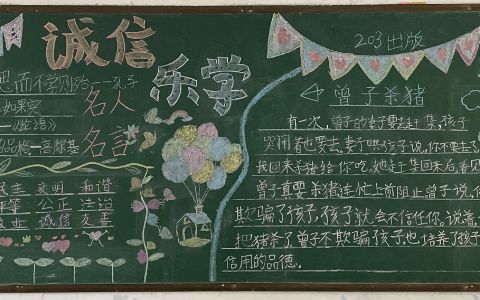 诚信
乐学
思而不学则殆——孔子
名人
名言
如果实
民主 文明 和谐
平等 公正 法治
敬业 诚信 友善
203出版
曾子杀猪
有一次,曾子的妻子要去赶集,孩子
哭闹着也要去,妻子哄孩子说,你不要去了
我回来杀猪给你吃,她赶集回来后,看见
曾子真要杀猪连忙上前阻止曾子说,你
欺骗了孩子,孩子就会不信任你,说着,
把猪杀了曾子不欺骗孩子,也培养了孩子
信用的品德。